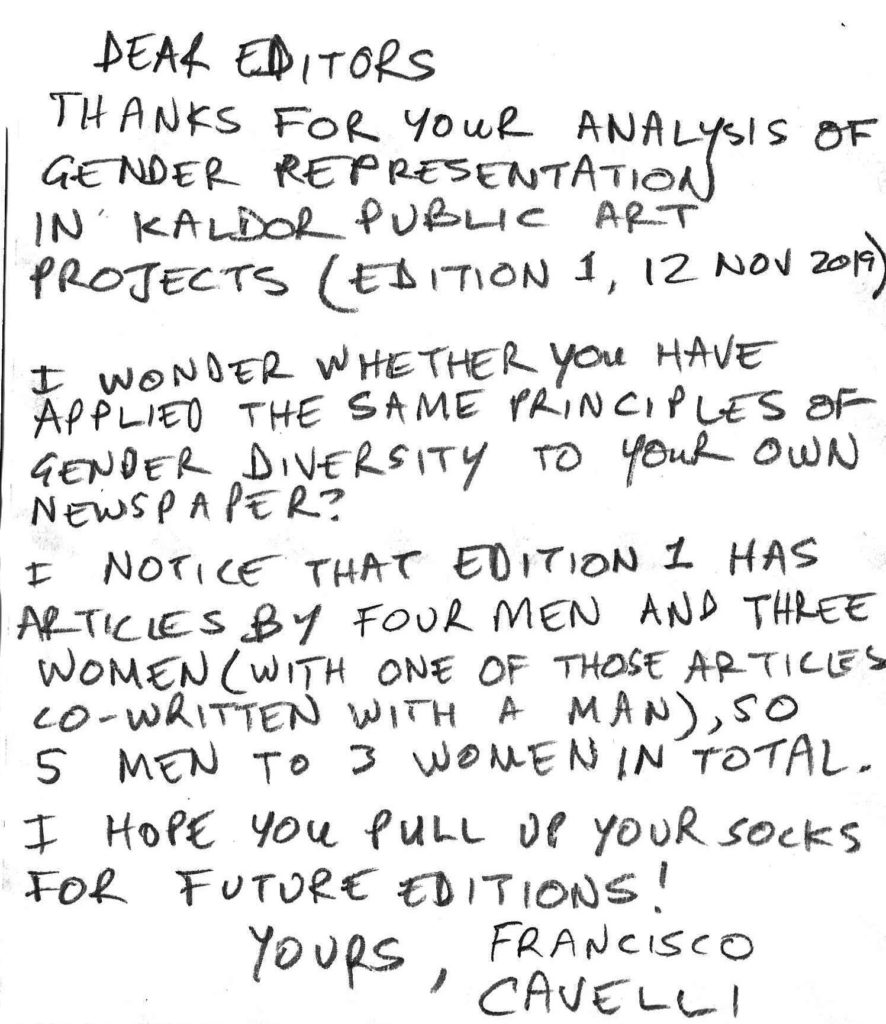 DEAR EDITORS
THANKS FOR YOUR ANALYSIS OF
GENDER REPRESENTATION
IN KALDOR PUBLIC ART
PROJECTS (EDITION 1, 12 NOV 2019)
I WONDER WHETHER YOU HAVE
APPLIED THE SAME PRINCIPLES OF
GENDER DIVERSITY TO YOUR OWN
NEWSPAPER?
I NOTICE THAT EDITION 1 HAS
ARTICLES BY FOUR MEN AND THREE
WOMEN (WITH ONE OF THOSE ARTICLES
CO-WRITTEN WITH A MAN), SO
5 MEN TO 3 WOMEN IN TOTAL.
I HOPE YOU PULL UP YOUR SOCKS
FOR FUTURE EDITIONS!
YOURS, FRANCISCO
CAVELLI